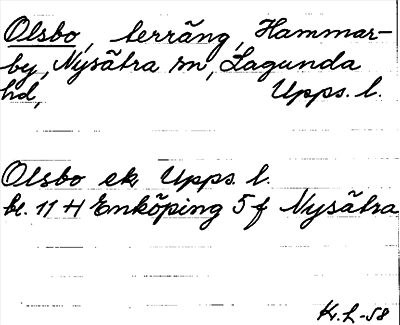 Olsbo, terräng, Hammar-
by, Nysätra sn, Lagunda
hd, Upps. l.
Olsbo ek Upps. l.
bl. 11 H Enköping 5 f Nysätra
Kr. L-58